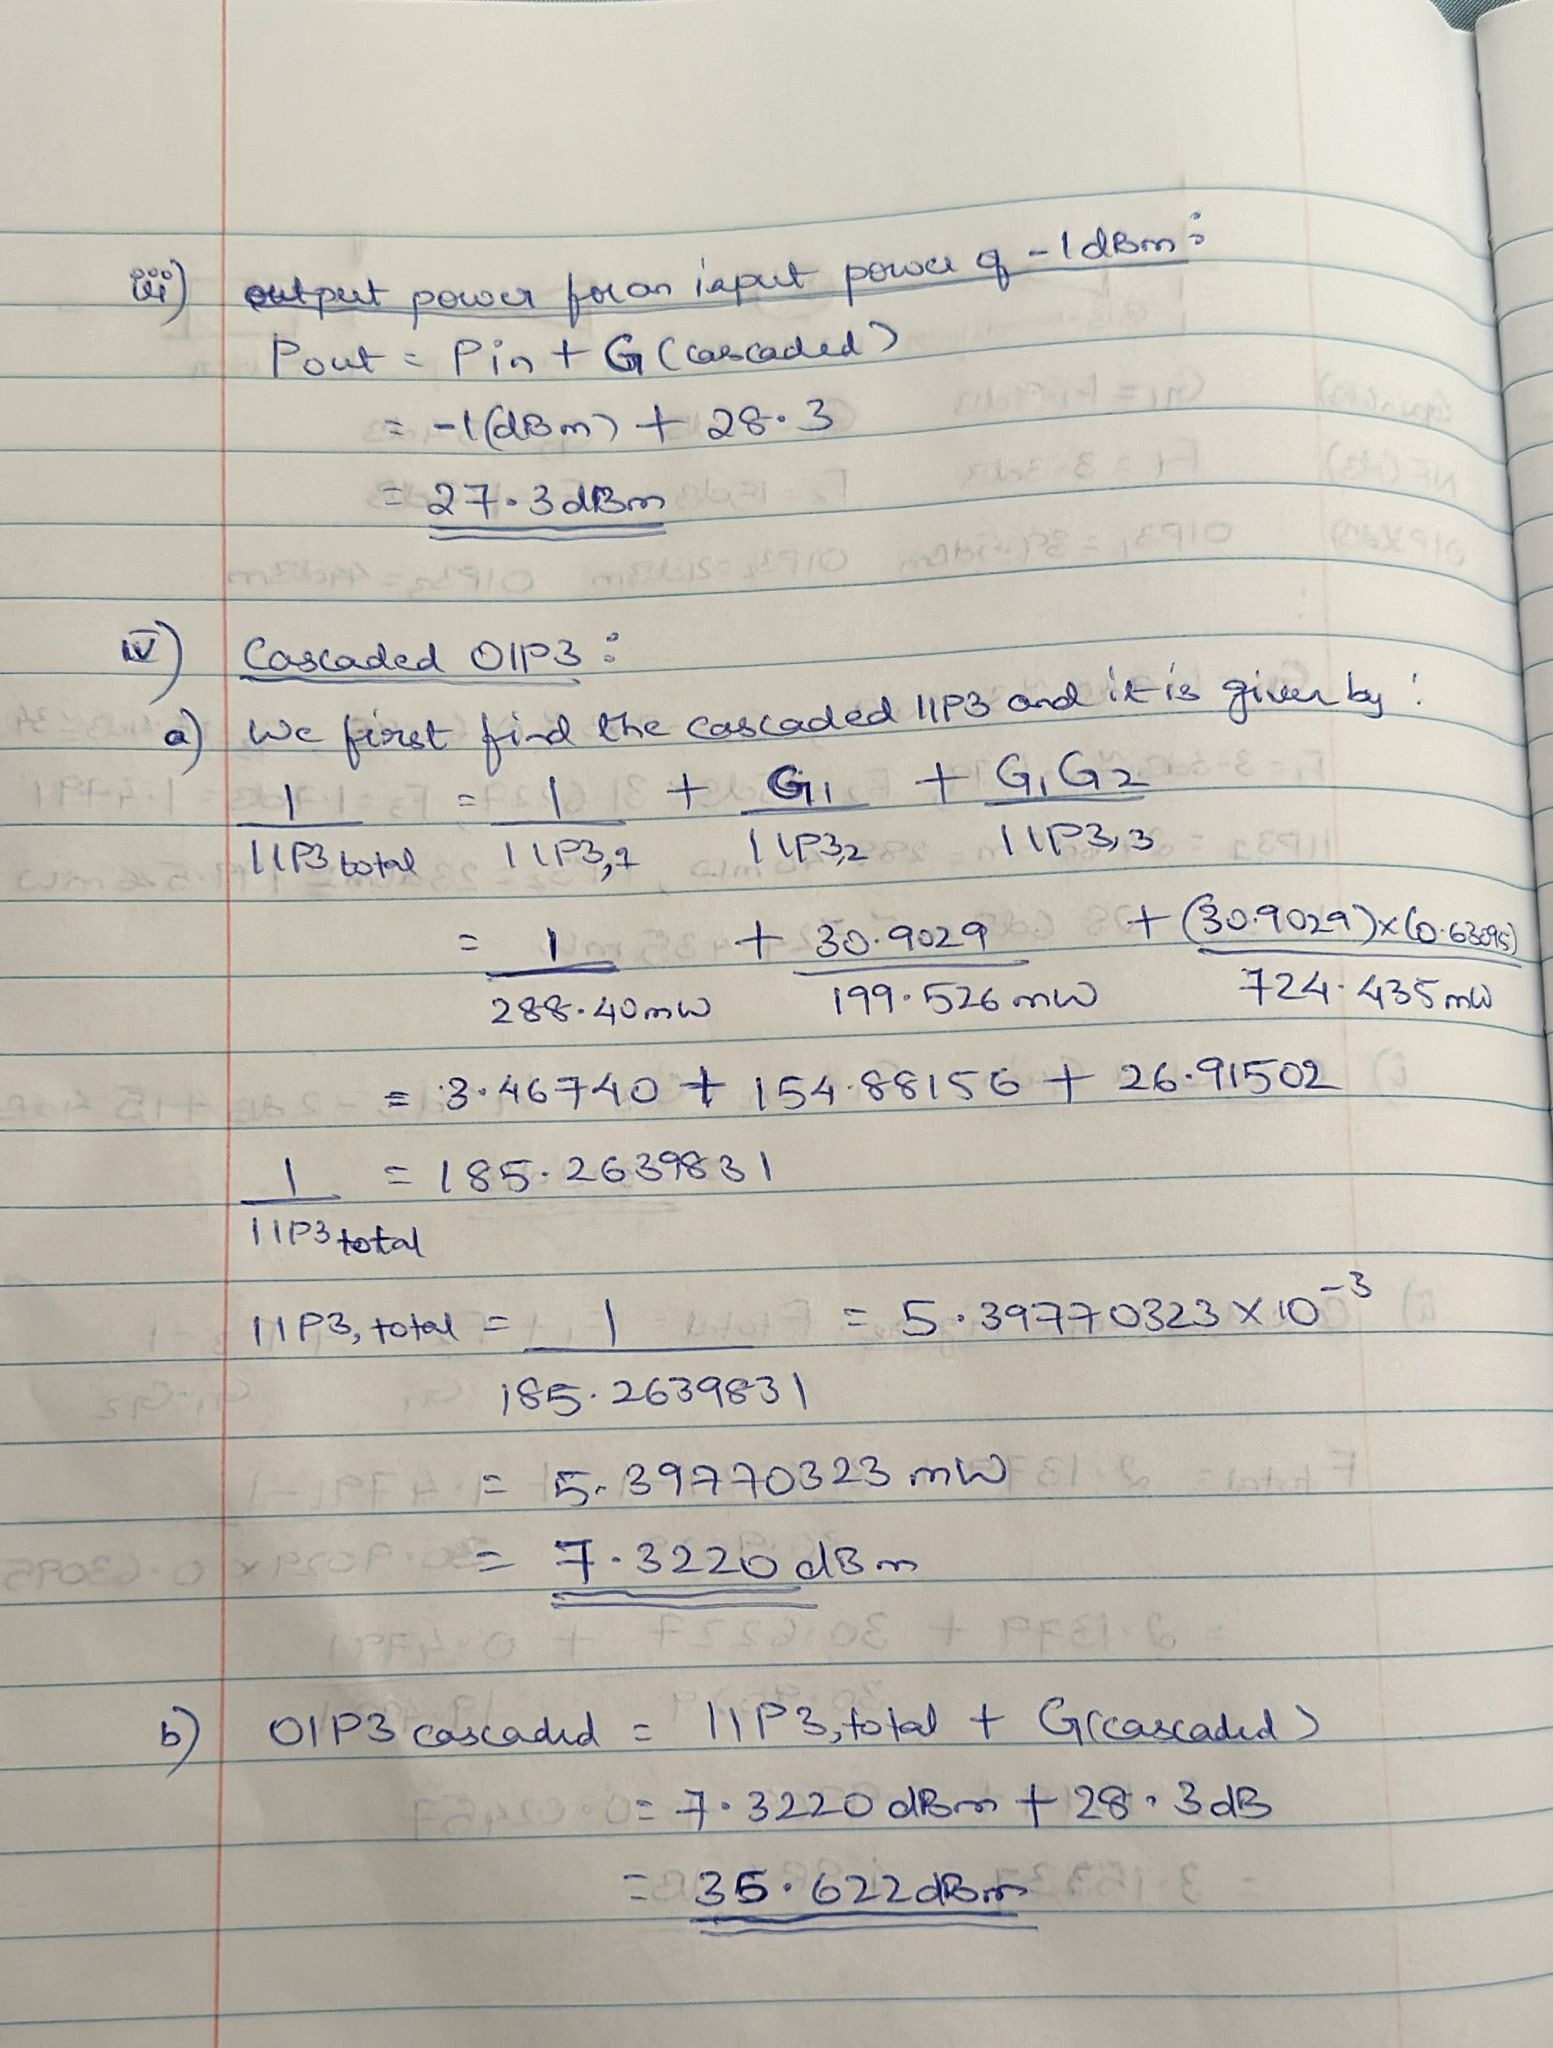 iii) output power for an input power of -1dBm:
Pout = Pin + G(cascaded)
= -1(dBm) + 28.3
= 27.3dBm
iv) Cascaded OIP3:
a) We first find the cascaded IIP3 and it is given by:
1/IIP3 total = 1/IIP3,1 + G1/IIP3,2 + G1G2/IIP3,3
= 1/288.40mW + 30.9029/199.526mW + (30.9029)x(0.63095)/724.435mW
= 3.46740 + 154.88156 + 26.91502
1/IIP3 total = 185.2639831
IIP3, total = 1/185.2639831 = 5.39770323 x 10^-3
= 5.39770323 mW
= 7.3220 dBm
b) OIP3 cascaded = IIP3, total + G(cascaded)
= 7.3220 dBm + 28.3dB
= 35.622dBm